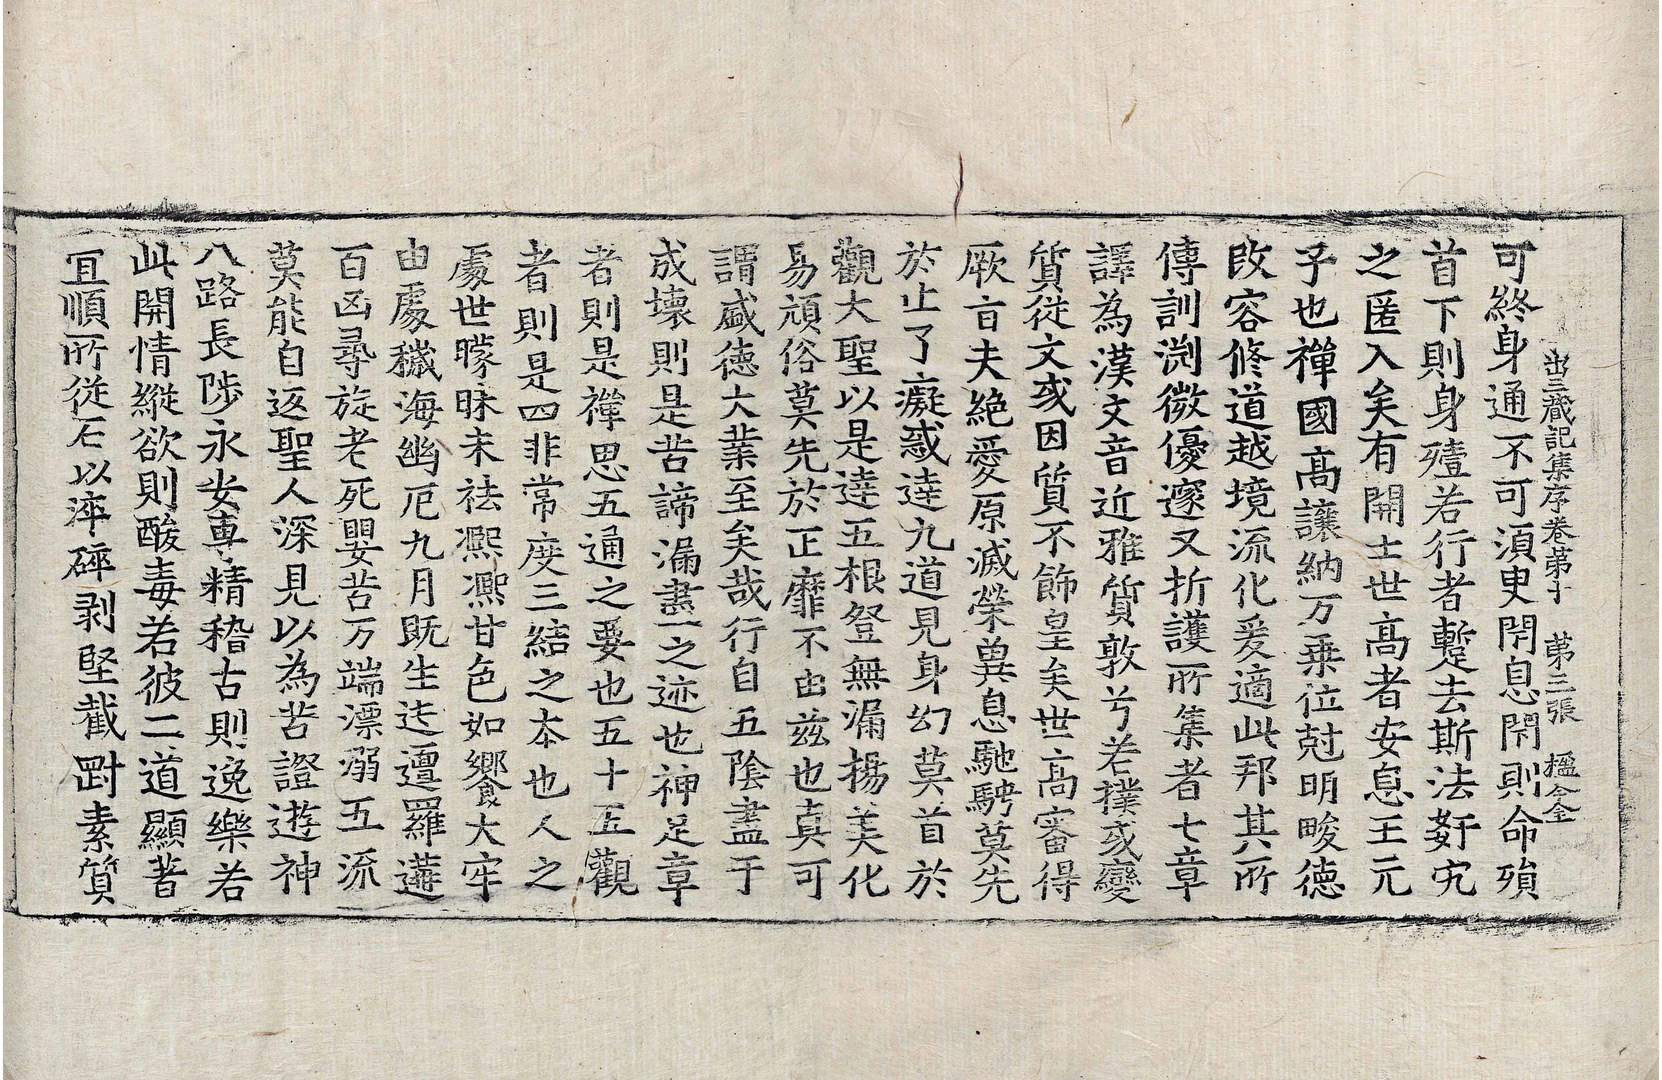 出三藏記集序卷第十　第三張　楹含
可終身通不可須臾閇息閇則命殞
首下則身殪若行者蹔去斯法姧宄
之匿入矣有開士世高者安息王元
子也禪國高讓納万乘位尅明畯德
改容修道越境流化爰適此邦其所
傳訓渕微優邃又折護所集者七章
譯為漢文音近雅質敦兮若撲或變
質從文或因質不飾皇矣世高審得
厥旨夫絕愛原滅榮兾息馳騁莫先
於止了癡惑達九道見身幻莫首於
觀大聖以是達五根登無漏揚美化
易頑俗莫先於正靡不由兹也真可
謂盛德大業至矣哉行自五陰盡于
成壞則是苦諦漏盡之迹也神足章
者則是禪思五通之要也五十五觀
者則是四非常度三結之本也人之
處世矇昧未祛熈熈甘色如饗大牢
由處穢海幽厄九月既生迍邅羅遘
百凶尋旋老死嬰苦万端漂溺五流
莫能自返聖人深見以為苦證遊神
八路長陟永安專精稽古則逸樂若
此開情縱欲則酸毒若彼二道顯著
冝順所從石以淬硺剥堅截剬素質